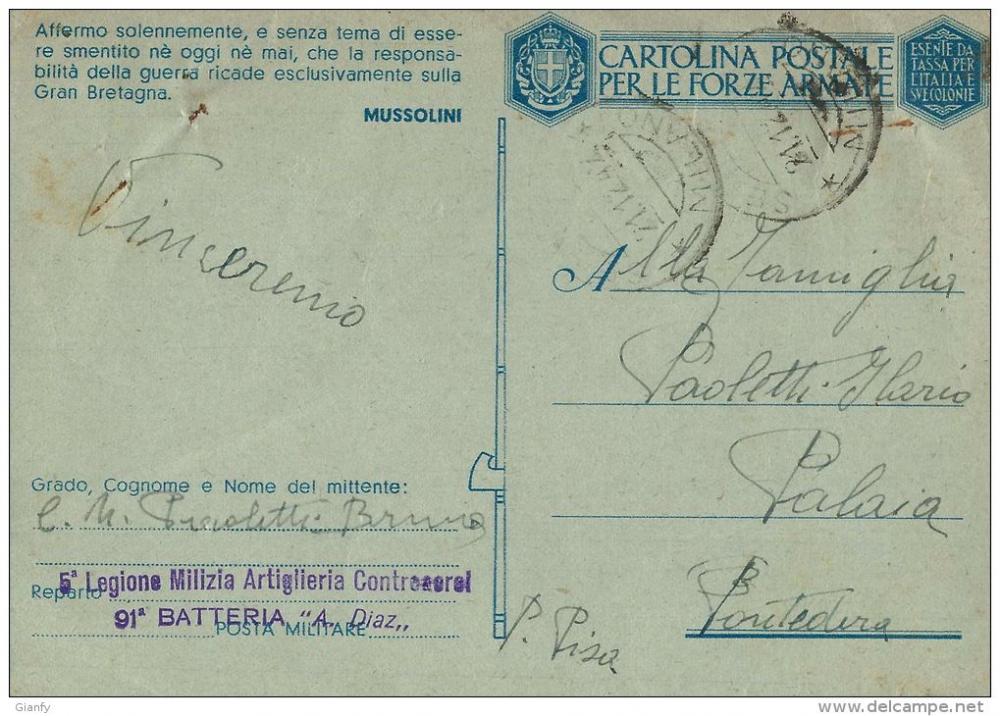 Affermo solennemente, e senza tema di esse-
re smentito nè oggi nè mai, che la responsa-
bilità della guerra ricade esclusivamente sulla
Gran Bretagna.
MUSSOLINI
CARTOLINA POSTALE
PER LE FORZE ARMATE
ESENTE DA
TASSA PER
L'ITALIA E
SVE COLONIE
MILANO
21.12.42
Vinceremo
Alla Famiglia
Paoletti Ilario
Palaia
Pontedera
P. Pisa
Grado, Cognome e Nome del mittente:
C. N. Paoletti Bruno
Reparto
5ª Legione Milizia Artiglieria Controaerei
91ª BATTERIA "A. Diaz,,
POSTA MILITARE
Gianfy
delcampe.net